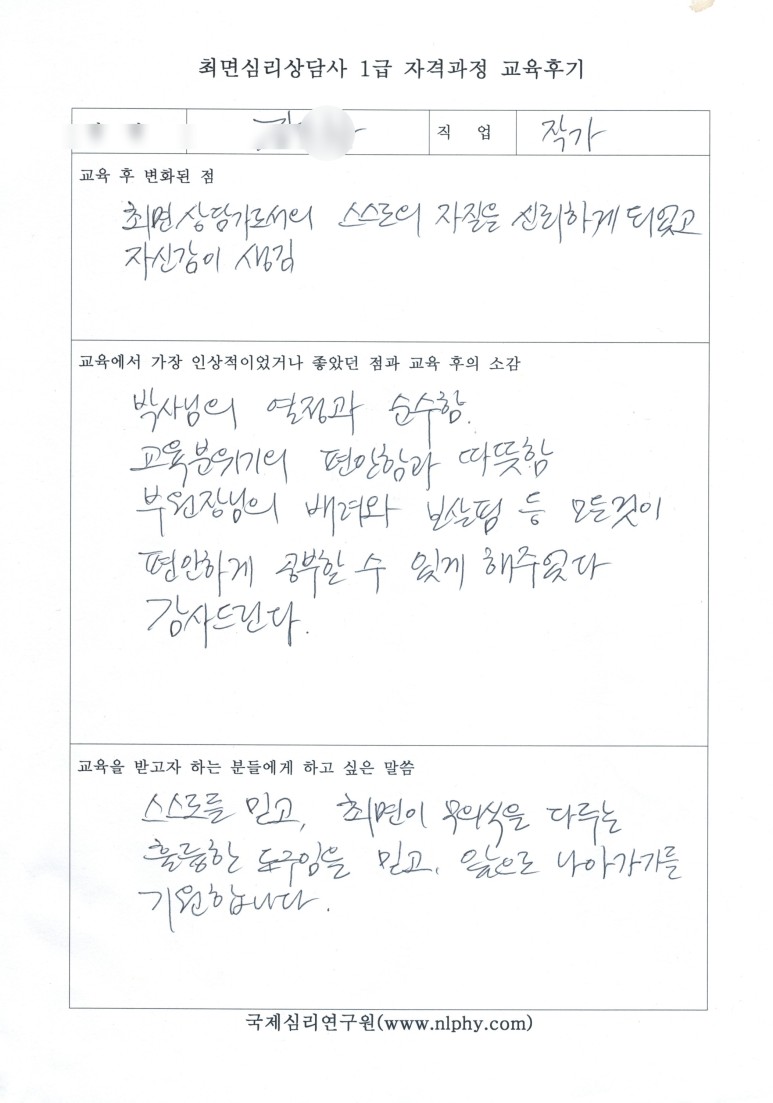 최면심리상담사 1급 자격과정 교육후기
직 업 작가
교육 후 변화된 점
최면상담가로서의 스스로의 자질을 신뢰하게 되었고
자신감이 생김
교육에서 가장 인상적이었거나 좋았던 점과 교육 후의 소감
박사님의 열정과 순수함.
교육분위기의 편안함과 따뜻함
부원장님의 배려와 보살핌 등 모든것이
편안하게 공부할 수 있게 해주었다
감사드린다.
교육을 받고자 하는 분들에게 하고 싶은 말씀
스스로를 믿고, 최면이 무의식을 다루는
훌륭한 도구임을 믿고, 앞으로 나아가기를
기원합니다.
국제심리연구원(www.nlphy.com)